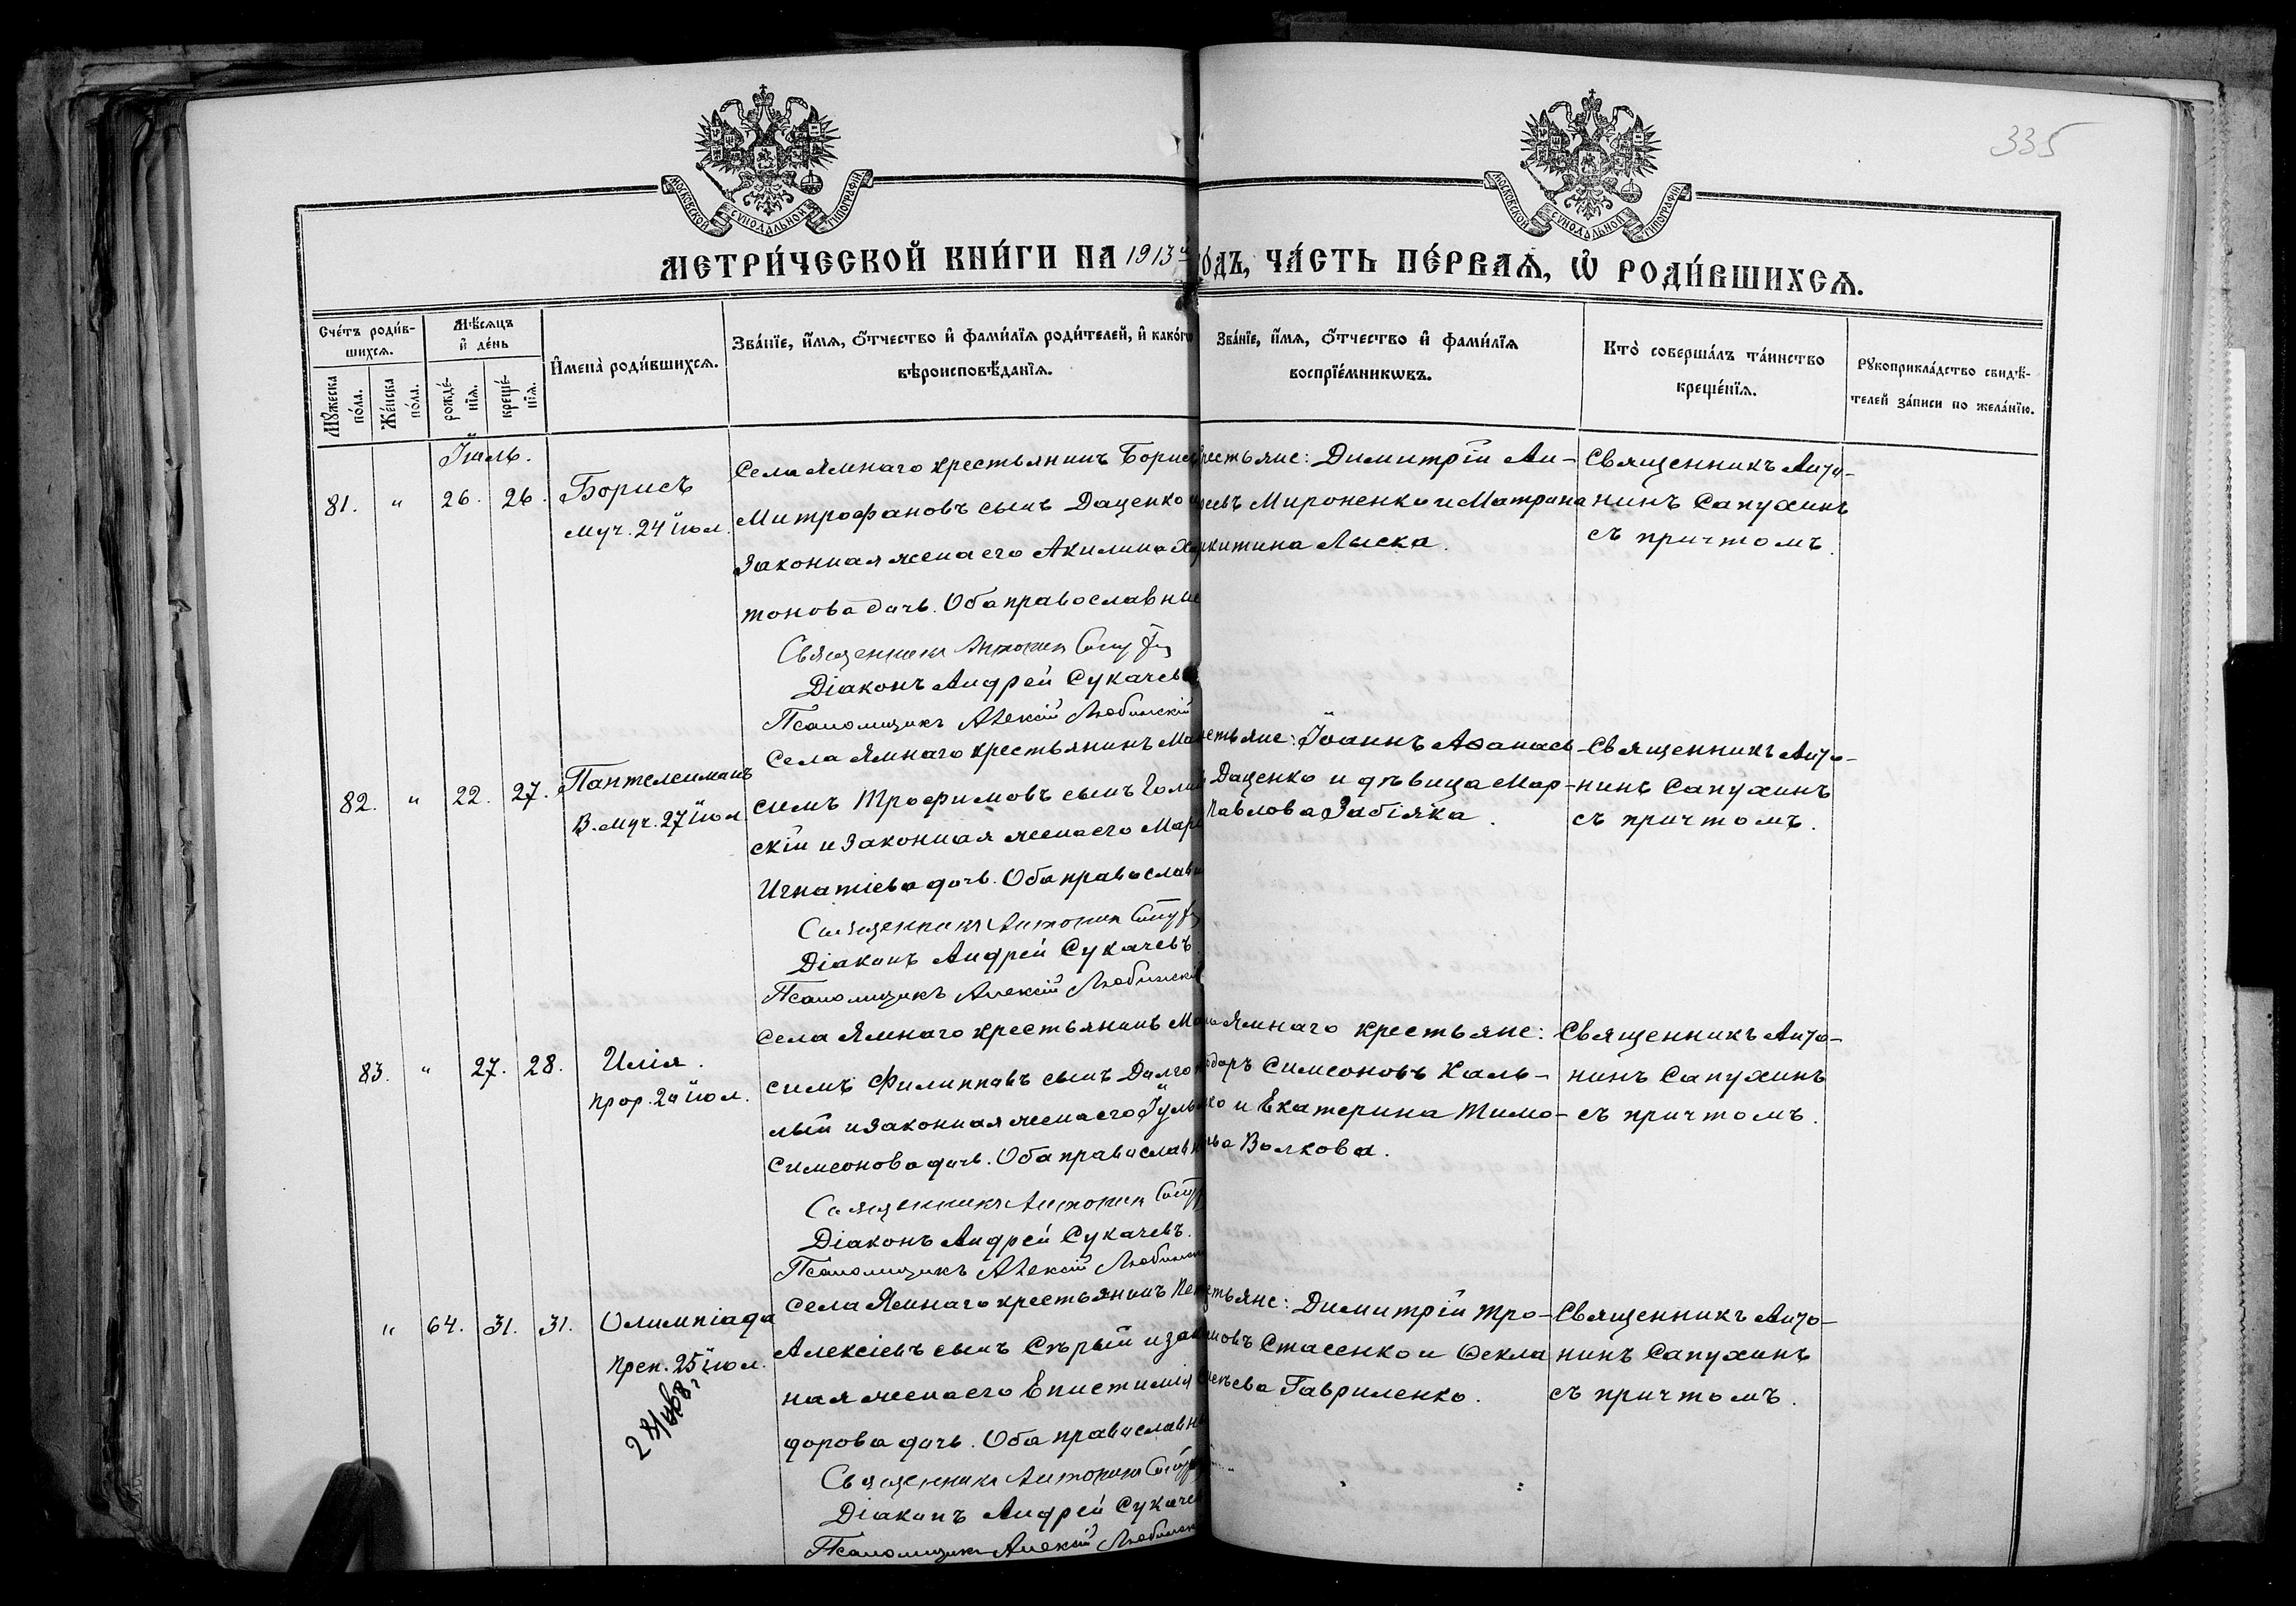 335
МОСКОВСКОЙ СУНОДАЛЬНОЙ ТИПОГРАФІИ
МОСКОВСКОЙ СУНОДАЛЬНОЙ ТИПОГРАФІИ
МЕТРИ́ЧЕСКОЙ КНИ́ГИ НА 1913й О́ДЪ, ЧА́СТЬ ПЕ́РВАѦ, Ѡ҆ РОДИ́ВШИХСѦ.
Сче́тъ роди́в-
шихсѧ.
Мѣ́сѧцъ
и҆ де́нь
Мꙋ́жеска
по́ла.
Же́нска
по́ла.
рожде́-
нїѧ.
креще́-
нїѧ.
И҆мена̀ роди́вшихсѧ.
Зва́нїе, и҆́мѧ, ѻ҆́тчество и҆ фами́лїѧ роди́телей, и҆ како́го
вѣроисповѣ́данїѧ.
Зва́нїе, и҆́мѧ, ѻ҆́тчество и҆ фами́лїѧ
воспрїе́мникѡвъ.
Кто̀ соверша́лъ та́инство
креще́нїѧ.
Рꙋкоприкла́дство свидѣ́-
телей за́писи по жела́нїю.
Іюль.
81. " 26. 26. Борисъ
муч. 24 іюл.
Села Ямнаго крестьянинъ Борисъ
Митрофановъ сынъ Даценко и
законная жена его Акилина Хар
тонова дочь. Оба православные
Священникъ Антонин
Діаконъ Андрей Сукачевъ
Псаломщикъ Алексій Любинскій
рестьяне: Димитрій Ан-
реевъ Мироненко и Матрона
китина Лыска.
Священникъ Анто-
нинъ Сапухинъ
съ причтомъ.
82. " 22. 27. Пантелеимонъ
В. муч. 27 іюл.
Села Ямнаго крестьянинъ Мак
симъ Трофимовъ сынъ Голов
скій и законная жена его Мар
Игнатіева дочь. Оба православн
Священникъ Антонин
Діаконъ Андрей Сукачевъ.
Псаломщикъ Алексій Любинскій
стьяне: Іоаннъ Аѳанась-
Даценко и дѣвица Мар-
Павлова Забіяка.
Священникъ Анто-
нинъ Сапухинъ
съ причтомъ.
83. " 27. 28. Илія.
прор. 20 іюл.
Села Ямнаго крестьянинъ Мак
симъ Филипповъ сынъ Долго
лый и законная жена его Іуль
Симеонова дочь. Оба православн
Священникъ Антонин
Діаконъ Андрей Сукачевъ.
Псаломщикъ Алексій Любинск
Ямнаго крестьяне:
одоръ Симеоновъ Каль-
ко и Екатерина Тимо-
ва Волкова.
Священникъ Анто-
нинъ Сапухинъ
съ причтомъ.
" 64. 31. 31. Олимпіада
преп. 25 іюл.
Села Ямнаго крестьянинъ Пет
Алексіевъ сынъ Сѣрый и закон
ная жена его Епистимія
дорова дочь. Оба православн
Священникъ Антонинъ
Діаконъ Андрей Сукаче
Псаломщикъ Алексій Любинск
стьяне: Димитрій Тро-
мовъ Стасенко и Ѳекла
сѣева Гавриленко.
Священникъ Анто-
нинъ Сапухинъ
съ причтомъ.